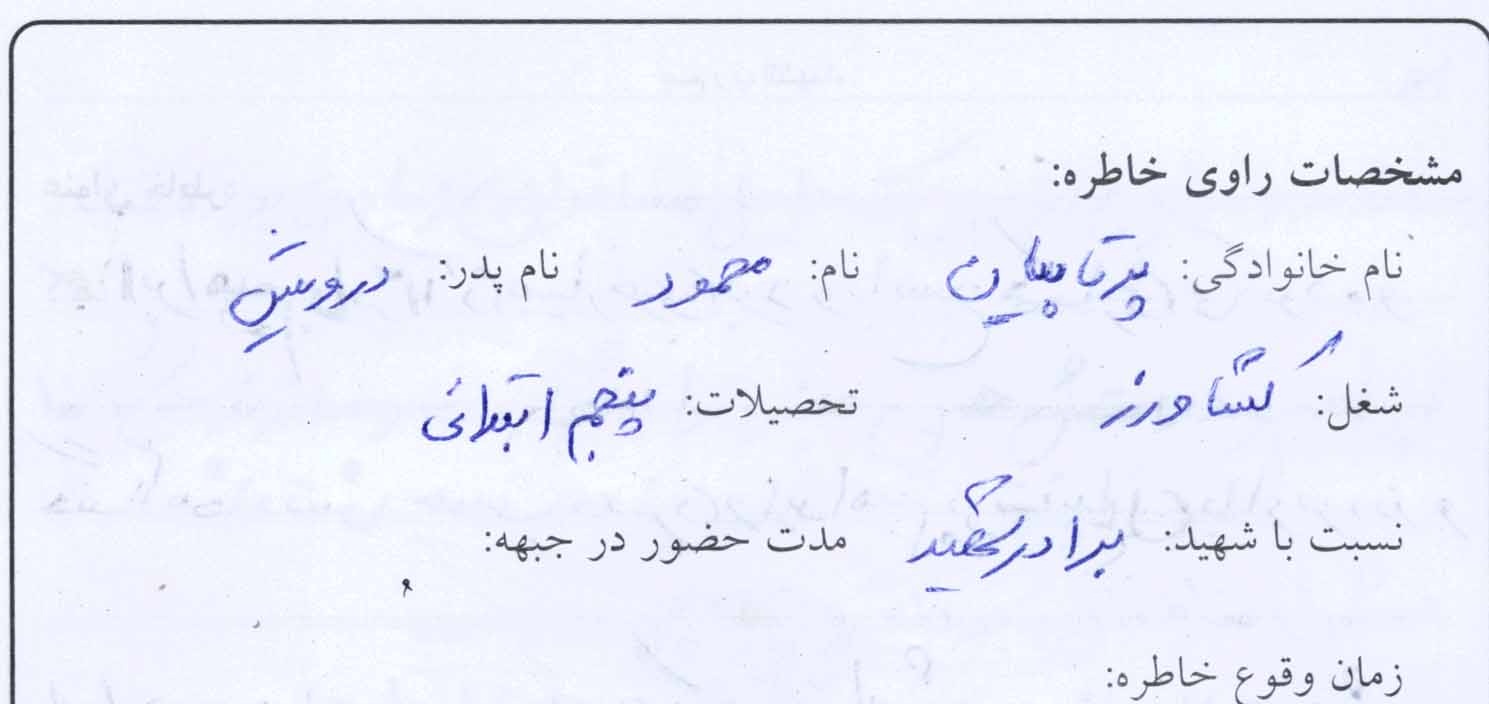 مشخصات راوی خاطره:
نام خانوادگی: پرتابیان نام: محمود نام پدر: درویش
شغل: کشاورز تحصیلات: پنجم ابتدائی
نسبت با شهید: برادر شهید مدت حضور در جبهه:
زمان وقوع خاطره: